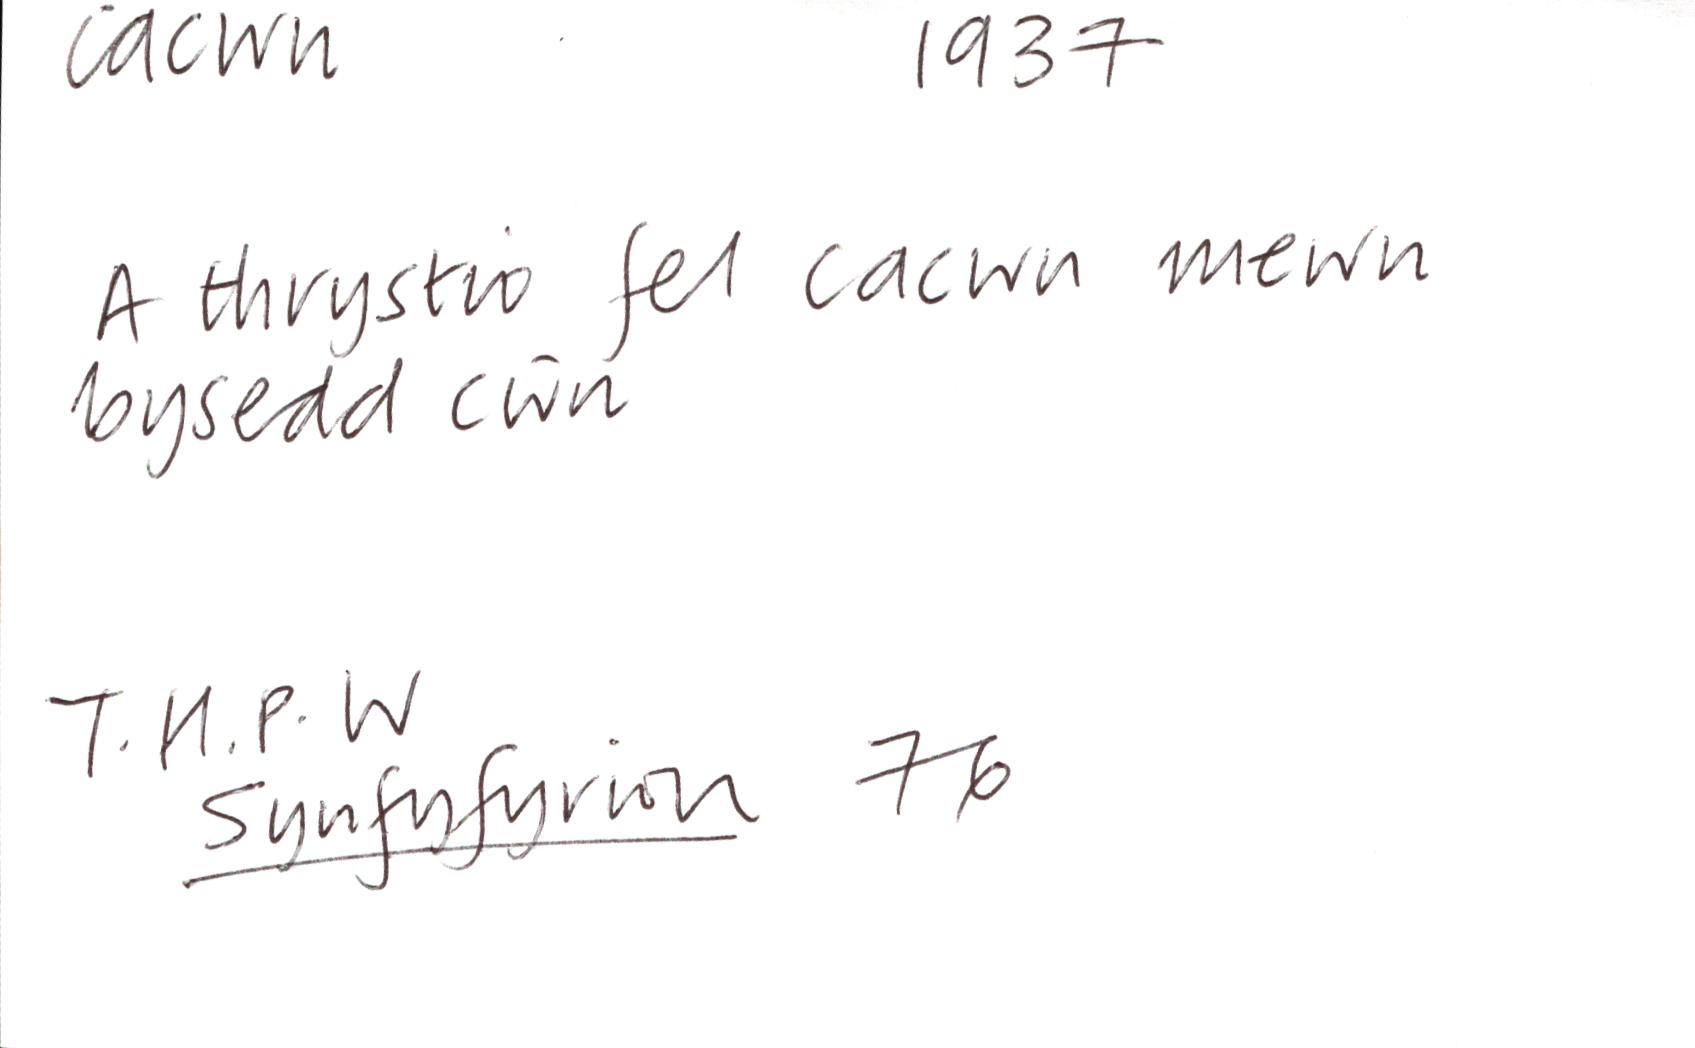 cacwn 1937
A thrystio fel cacwn mewn
bysedd cŵn
T.H.P.W
Synfyfyrion 76